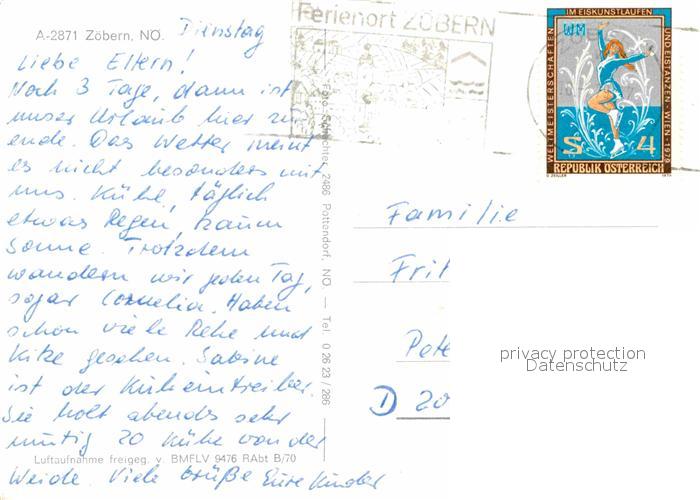 A-2871 Zöbern, NÖ.
Dienstag
Liebe Eltern!
Noch 3 Tage, dann ist
unser Urlaub hier zu
ende. Das Wetter meint
es nicht besonders mit
uns. Kühl, täglich
etwas Regen, kaum
Sonne. Trotzdem
wandern wir jeden Tag,
sogar Cornelia. Haben
schon viele Rehe und
Kitze gesehen. Sabine
ist der Kuheintreiber.
Sie holt abends sehr
mutig 20 Kühe von der
Luftaufnahme freigeg. v. BMFLV 9476 RAbt B/70
Weide. Viele Grüße Eure Kinder
2486 Pottendorf, NÖ. — Tel. 0 26 23 / 286
Ferienort ZÖBERN
WELTMEISTERSCHAFTEN
IM EISKUNSTLAUFEN
UND EISTANZEN-WIEN-1979
WM
S 4
REPUBLIK ÖSTERREICH
Familie
Frit
D 20
privacy protection
Datenschutz